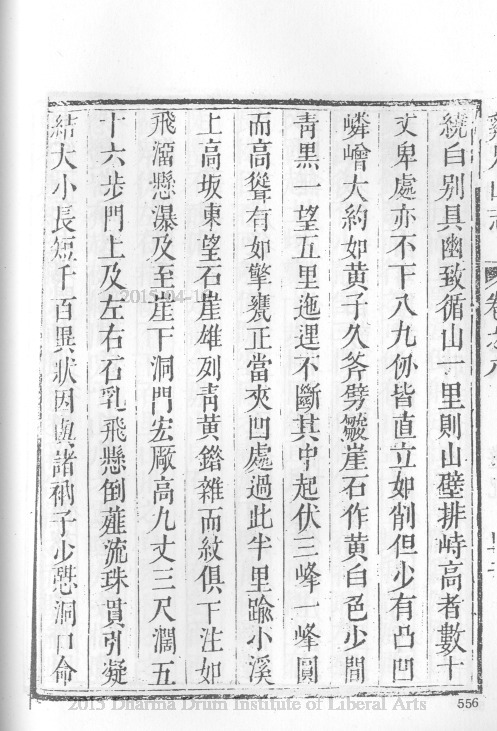 繞白別具幽致循山一里則山壁排峙高者數十
丈卑處亦不下八九仞皆直立如削但少有凸凹
嶙嶒大約如黃子久斧劈皴崖石作黃白色少間
青黑一望五里迤邐不斷其中起伏三峰一峰圓
而高聳有如擎甕正當夾凹處過此半里踰小溪
上高坂東望石崖雄列青黃錯雜而紋俱下注如
飛溜懸瀑及至崖下洞門宏厰高九丈三尺濶五
十六步門上及左右石乳飛懸倒薤流珠貫引凝
結大小長短千百異狀因與諸衲子少憇洞口命
556
2015 Dharma Drum Institute of Liberal Arts